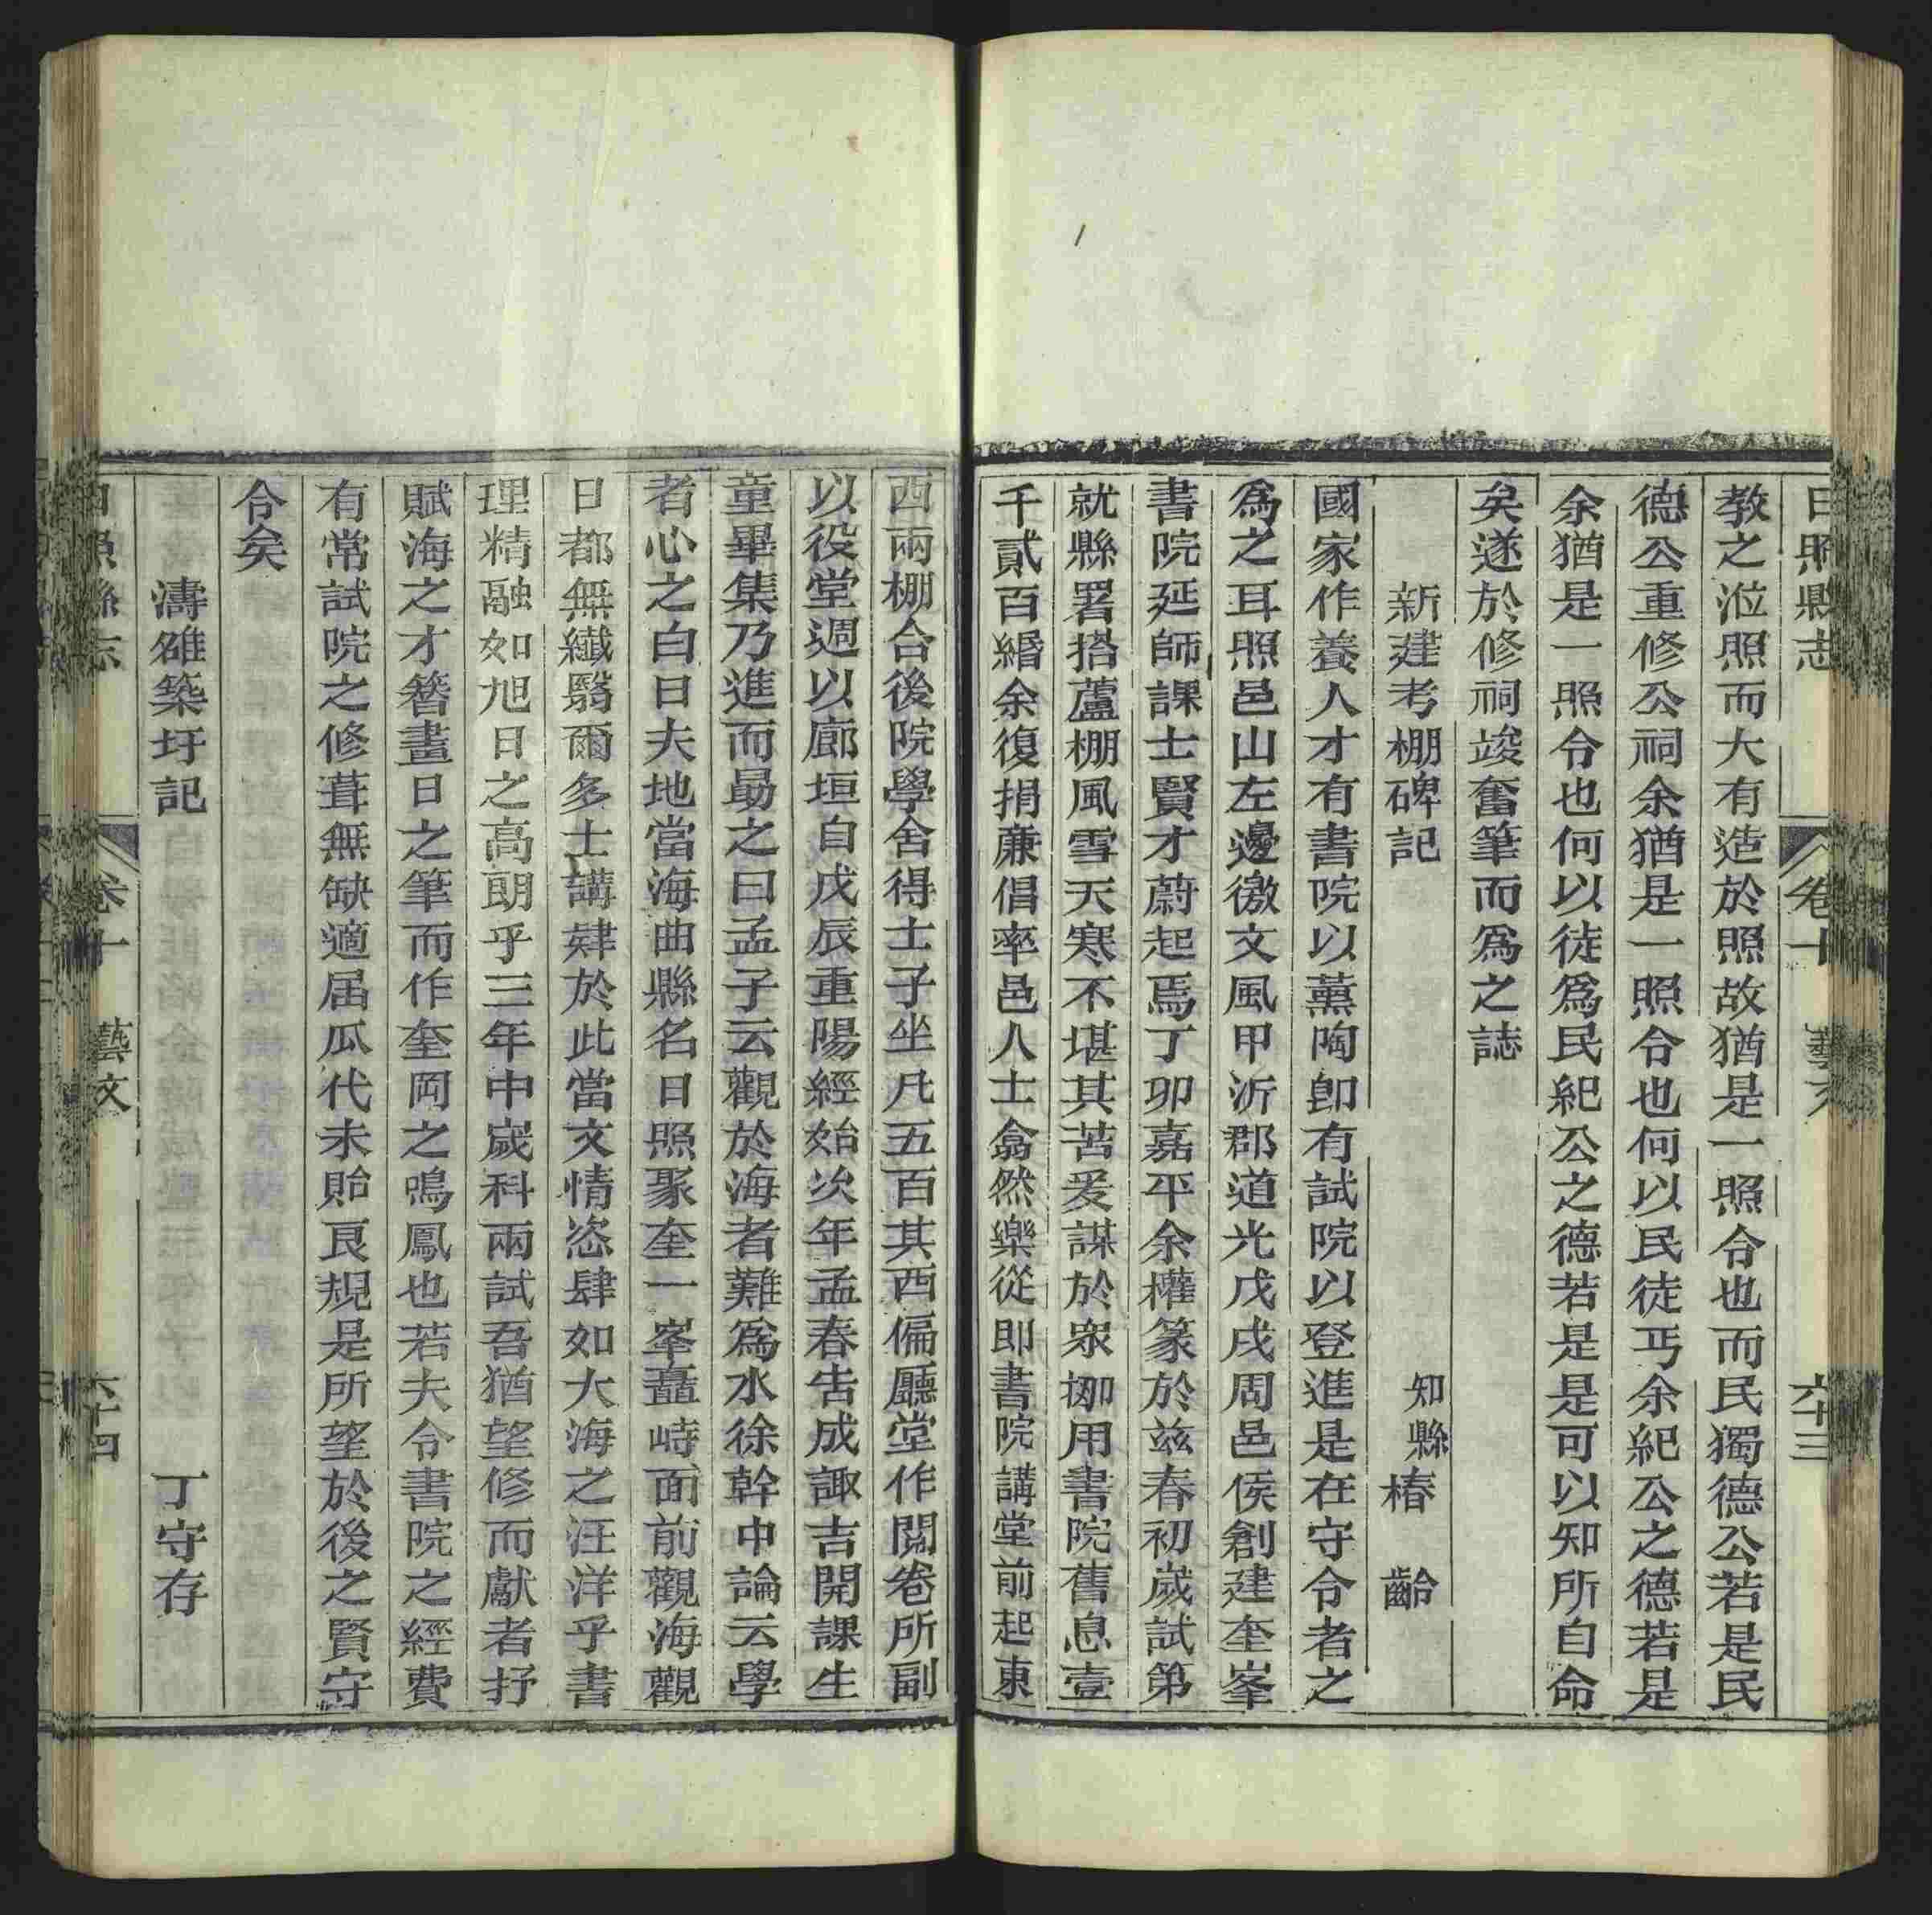 日照縣志 卷十 藝文 六十三
教之涖照而大有造於照故猶是一照令也而民獨德公若是民
德公重修公祠余猶是一照令也何以民徒丐余紀公之德若是
余猶是一照令也何以徒爲民紀公之德若是是可以知所自命
矣遂於修祠竣奮筆而爲之誌
新建考棚碑記 知縣 椿齡
國家作養人才有書院以薰陶卽有試院以登進是在守令者之
爲之耳照邑山左邊徼文風甲沂郡道光戊戌周邑侯創建奎峯
書院延師課士賢才蔚起焉丁卯嘉平余權篆於兹春初歲試第
就縣署搭蘆棚風雪天寒不堪其苦爰謀於眾挪用書院舊息壹
千貳百緡余復捐亷倡率邑人士翕然樂從即書院講堂前起東
西兩棚合後院學舍得士子坐凡五百其西偏廳堂作閱卷所副
以役堂週以廊垣自戊辰重陽經始次年孟春告成諏吉開課生
童畢集乃進而勗之曰孟子云觀於海者難爲水徐幹中論云學
者心之白日夫地當海曲縣名日照聚奎一峯矗峙面前觀海觀
日都無纖翳爾多士講肄於此當文情恣肆如大海之汪洋乎書
理精融如旭日之高朗乎三年中歲科兩試吾猶望修而獻者抒
賦海之才簪畫日之筆而作奎岡之鳴鳳也若夫令書院之經費
有常試院之修葺無缺適届瓜代未貽良規是所望於後之賢守
令矣
濤雒築圩記 丁守存
日照縣志 卷十 藝文 六十四